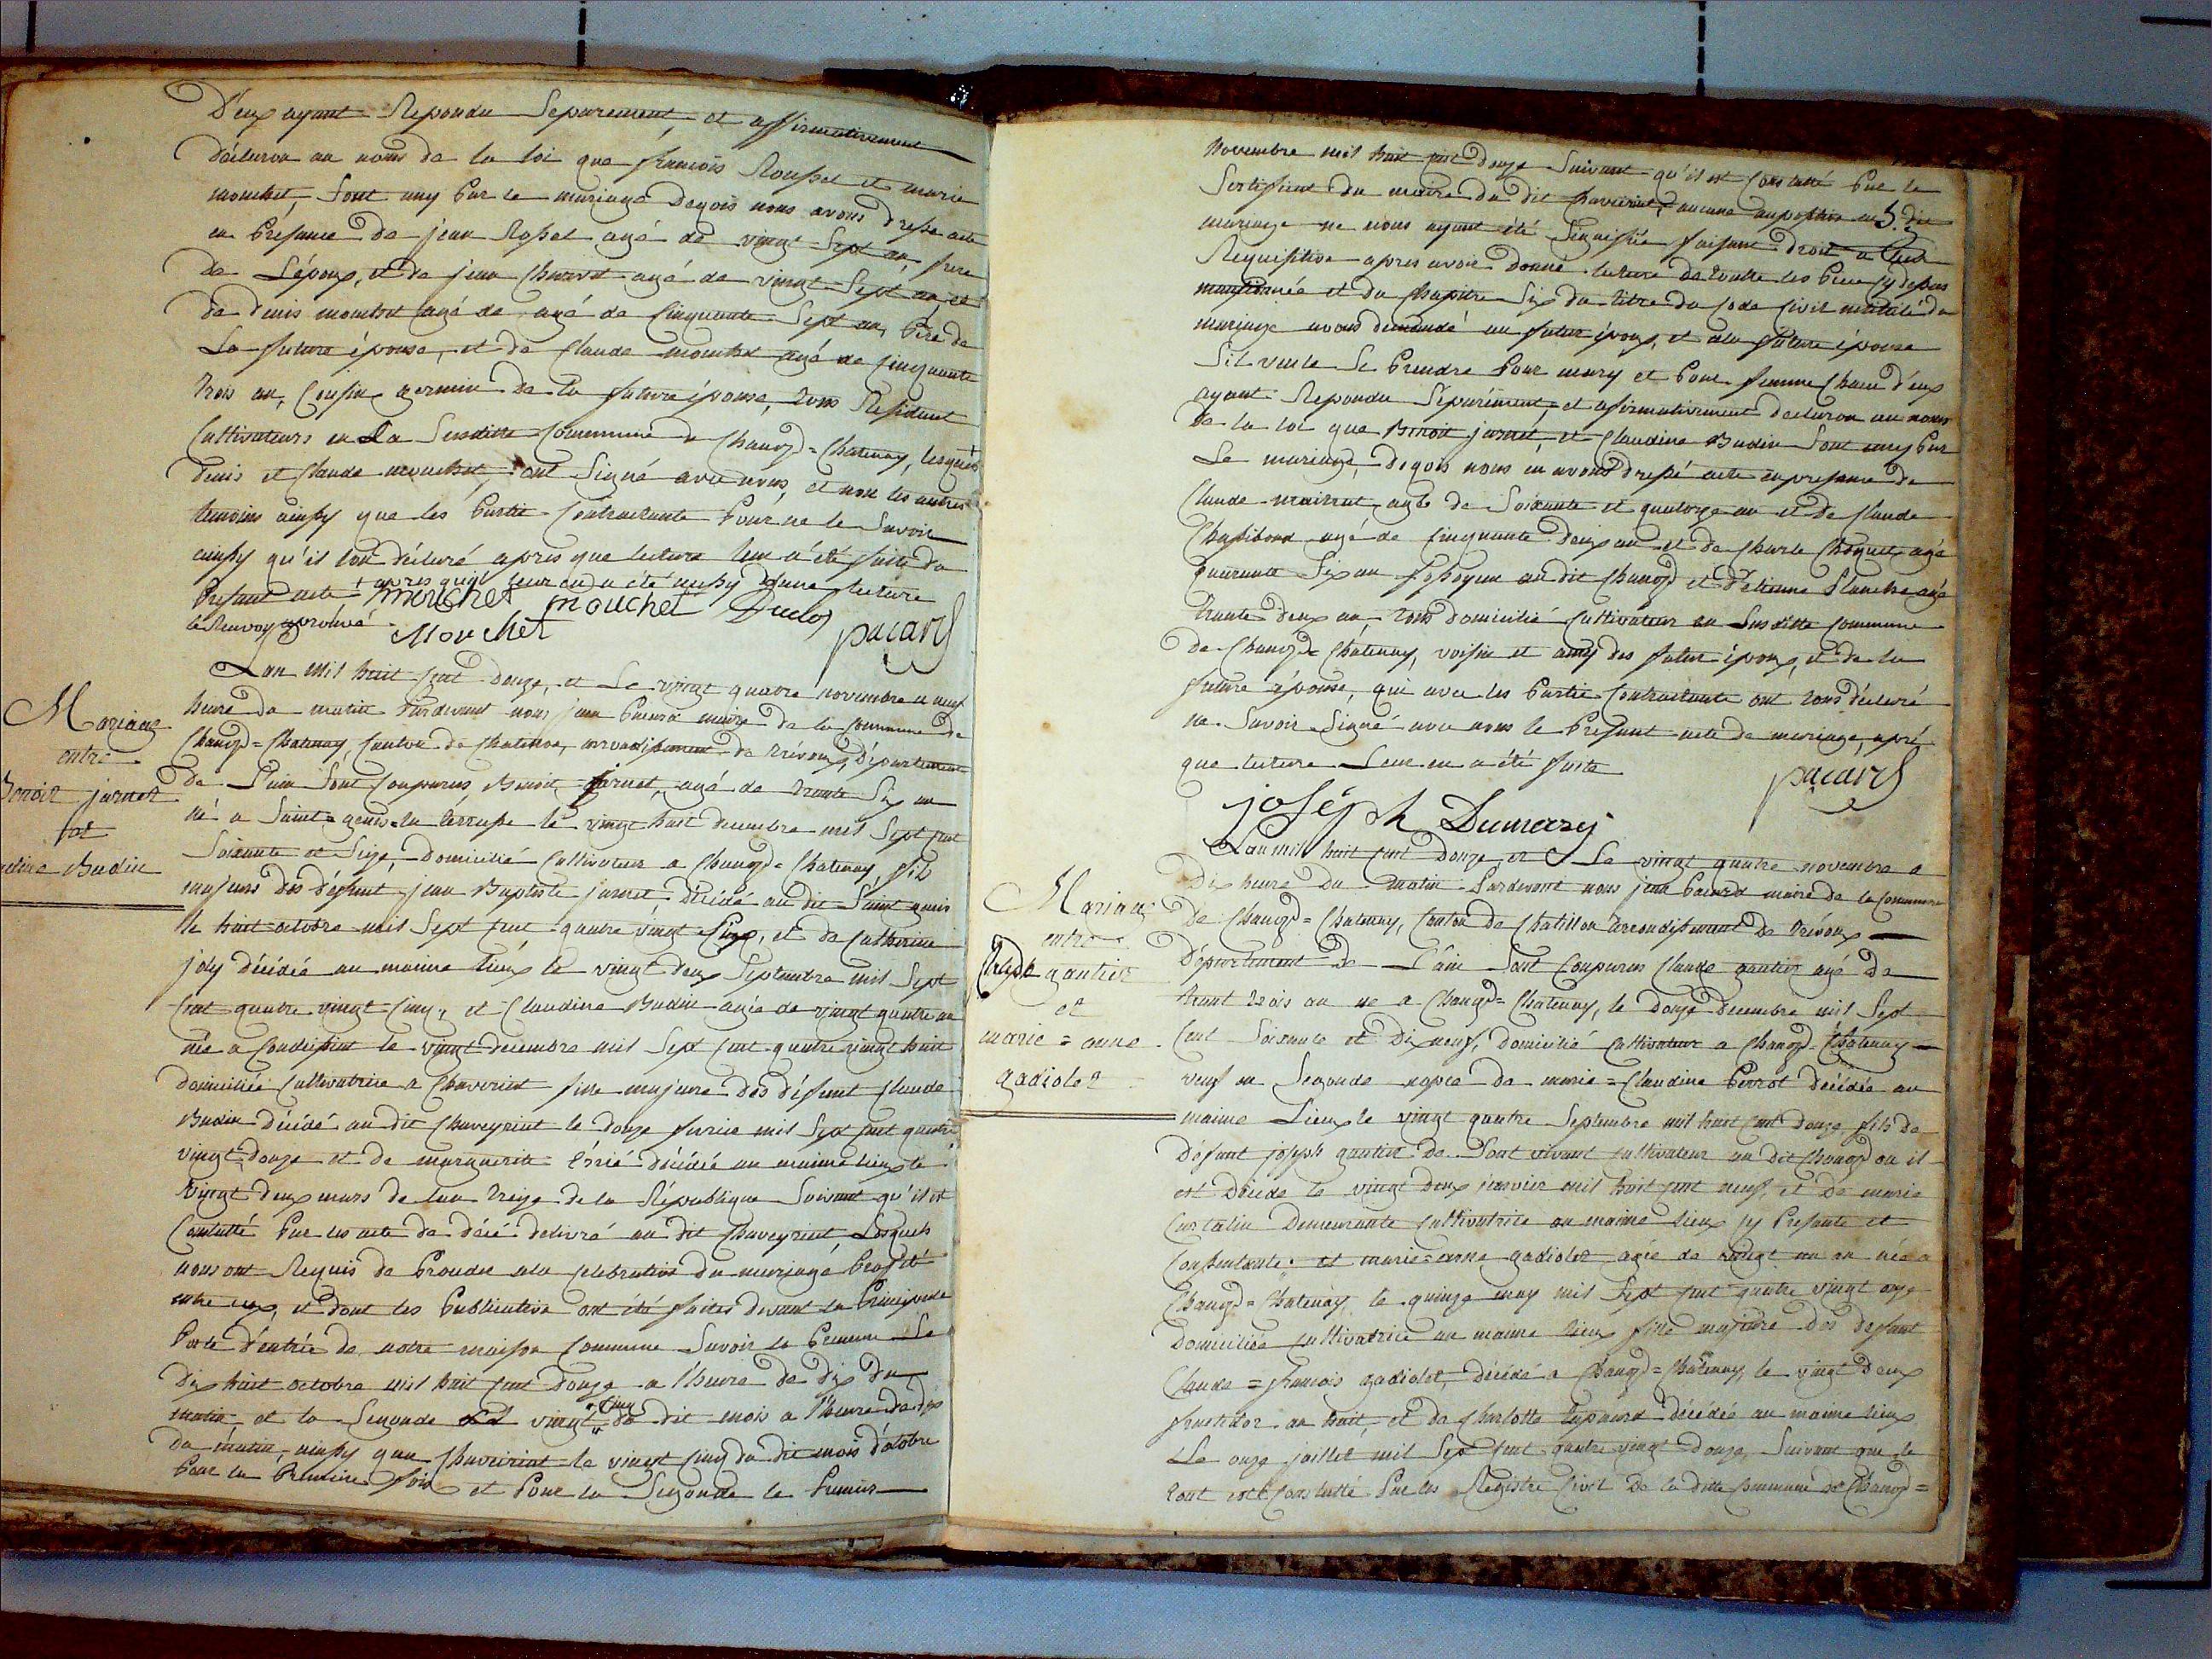 D'eux ayant Repondu Separement, et affirmativement
déclaron au nom de la loi que francois Roussel et marie
mouchet, sont uny par le mariage dequois nous avons dressé acte
en présance de jean Rossel agé de vingt sept an, frere
de L'époux, et de jean agé de vingt sept an et
de denis mouchet agé de agé de cinquante sept an, Pére de
La future épouse, et de Claude mouchet agé de cinquante
trois an, cousin germin de la future épouse, tous Residant
Cultivateurs en La Susditte Commune de Chanoz=Chatenay, lesquels
denis et Claude mouchet, ont signé avec nous, et non les autres
temoins ainsy que les Partie Contractante Pour ne le Savoir
ainsy qu'il l'on déclaré apres que lecture leur a été faite du
Présant acte + apres qu'il leur en a été aussy donné lecture
le Renvoy aprouvé mouchet mouchet Duclos
Mouchet pacard
Lan mil huit cent douze, et Le vingt quatre novembre a neuf
heure du matin Pardevant nous jean Pacard maire de la Commune de
Chanoz=Chatenay, Canton de Chatillon, arrondissement de trévoux, Département
Mariage
entre
Benoit jarnet
et
Budin
de L'ain sont comparus, Benoit jarnet, agé de trante six an
né a Saint=genis=la le vingt huit decembre mil Sept cent
Soixante et Seize, Domicilié Cultivateur a Chanoz=Chatenay, fils
majeurs des défunt jean Baptiste jarnet décédé au dit Saint genis
le huit octobre mil Sept cent quatre vingt et de Catherine
joly décédée au maime lieux le vingt deux Septembre mil Sept
Cent quatre vingt cinq, et Claudine Budin agée de vingt quatre an
née a Condeissiat le vingt decembre mil Sept cent quatre vingt huit
domiciliée Cultivatrice a Chaveriat fille majeure des défunt Claude
Budin décédé au dit Chaveyriat le douze fevrier mil Sept cent quatre
vingt douze et de marguerite décédée au maime lieux le
vingt deux mars de lan treize de la République Suivant qu'il est
Constatté Par les acte de décé delivré au dit Chaveyriat Lesquels
nous ont Requis de Procedé a la Celebration du mariage Projetté
entre eux, et dont les Publication ont été faites devant la Principale
Porte d'entrée de notre maison Commune Savoir la Premiere Le
Dix huit octobre mil huit cent douze a l'heure de dix du
matin et la Seconde Le vingt cinq du dit mois a l'heure de dix
du matin, ainsy qua Chaveriat le vingt cinq du dit mois d'octobre
Pour la Premiere fois et Pour la Segonde le Premier
Novembre mil huit cent douze Suivant qu'il est Constatté Par le
Sertificat du maire du dit Chaveriat, aucune au dit
mariage ne nous ayant été Signifiée faisant droit a leur
Requisition apres avoir donné lecture de toutte les Piece cy dessus
mentionnée et du Chapitre Six du titre du Code Civil intitulé du
mariage avons demandé au futur époux, et ala future épouse
S'il veule Se Prendre Pour mary et Pour femme Chacun d'eux
ayant Repondu Séparément, et afirmativement declaron au nom
de la loi que Benoit jarnet, et Claudine Budin Sont uny Par
Le mariage, dequois nous en avons dressé acte en presance de
Claude agé de Soixante et quatorze an et de Claude
agé de cinquante deux an et de Charle agé
quarante Six an au dit Chanoz et d'etienne Blanche agé
trante deux an tous domicilié Cultivateur en Susditte Commune
de Chanoz=Chatenay, voisin et amy des futur époux, et de la
future épouse, qui avec les Partie Contractante ont tous déclaré
ne Savoir Signé avec nous le Présant acte de mariage, apré
que lecture Leur en a été faite pacard
joséph Dumarey
Lan mil huit cent Douze, et Le vingt quatre novembre a
Dix heure du matin Pardevant nous jean Pacard maire de la Commune
Mariage
entre
Claude gautier
et
marie=anne
gadiolet
De Chanoz=Chatenay, Canton de Chatillon Arrondissement de trévoux
Département de L'ain Sont Comparus Claude gautier agé De
trant trois an né a Chanoz=Chatenay, le douze Decembre mil Sept
Cent Soixante et Dix neuf, domicilié Cultivateur a Chanoz=Chatenay
veuf en Segonde nopce de marie=Claudine Perrot décédée au
maime Lieux le vingt quatre Septembre mil huit Cent Douze fils de
Défunt joseph gautier de Sont vivant Cultivateur au dit Chanoz ou il
est Décédé le vingt deux janvier mil huit cent neuf, et de marie
Demeurante Cultivatrice au maime lieux cy Presante et
Consentante. et marie=anne gadiolet agée de vingt un an née a
Chanoz=Chatenay, le quinze may mil Sept cent quatre vingt onze
Domiciliée cultivatrice au maime lieux fille majeure des defunt
Claude=francois gadiolet, décédé a Chanoz=Chatenay, le vingt deux
fructidor an huit, et de Charlotte décédée au maime lieux
Le onze juillet mil Sept cent quatre vingt douze, Suivant que le
tout est Constatté Par les Registre Civil de la ditte Commune de Chanoz=